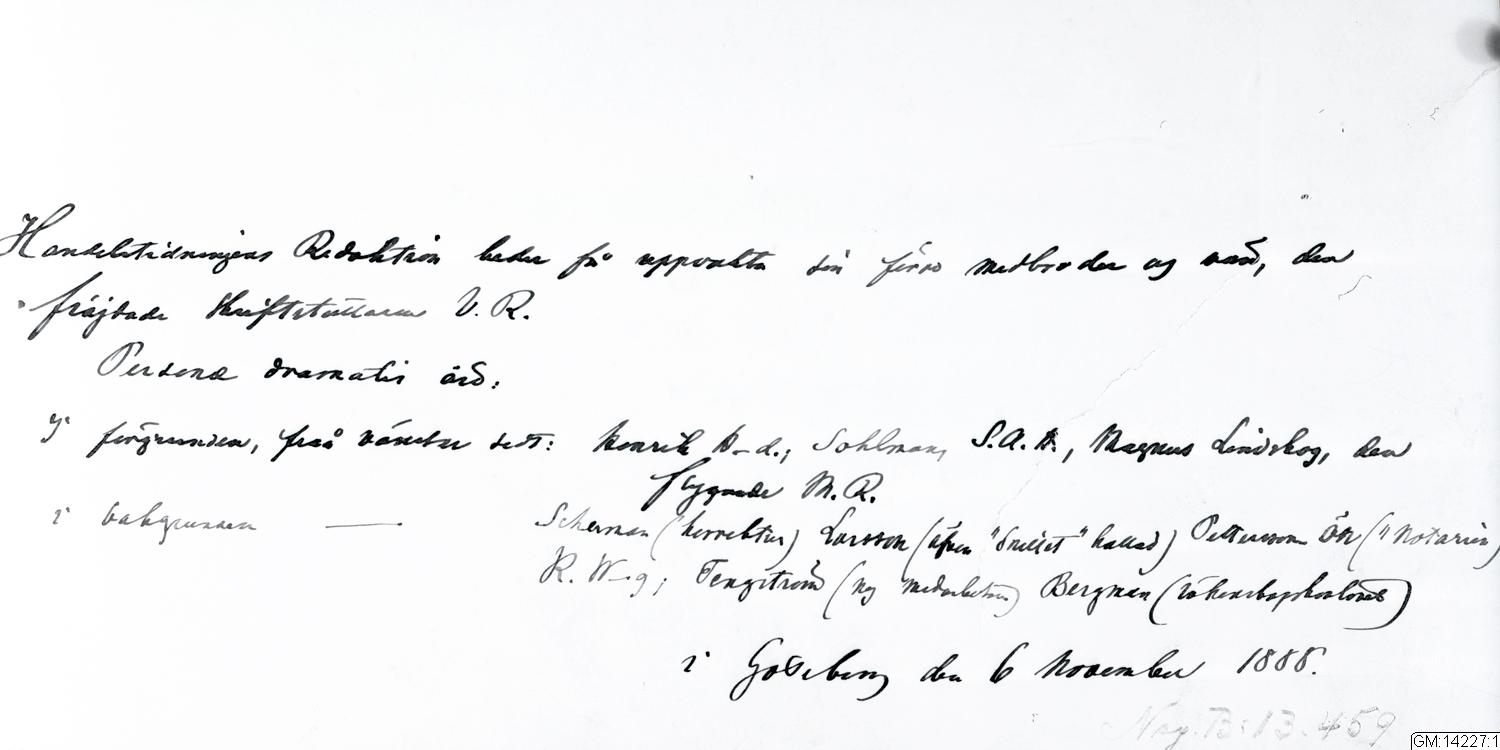 Handelstidningens Redaktion beder få uppvakta sin förre medbroder og vän, den
fräjdade skriftställaren V. R.
Personæ dramatis äro:
I förgrunden, från vänster sedt: Henrik H–d.; Sohlman, S.A.H., Magnus Lindskog, den
flygande M. R.
i bakgrunden — Scherman (korrektur) Larsson (äfven "Snillet" kallad) Pettersson ("Notarien)
K. W–g; Tengström (ny medarbetare) Bergman
i Göteborg den 6 November 1888.
Neg. B: 13.459
GM:14227:1